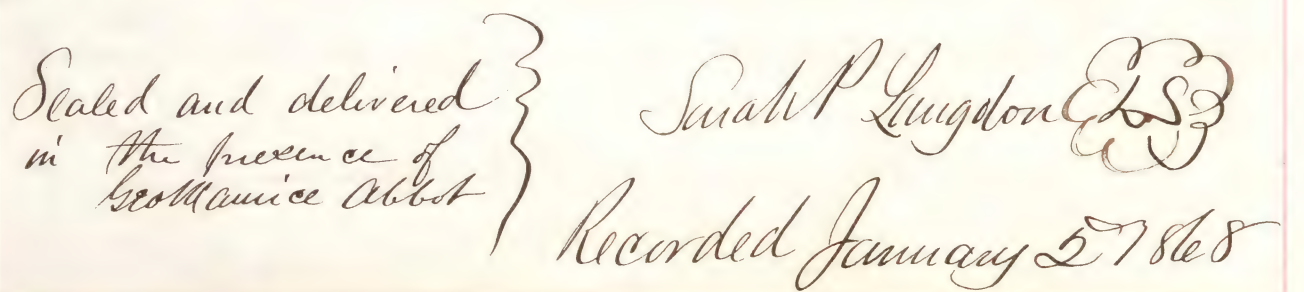 Sealed and delivered
in the presence of
Geo Maurice Abbot
Sarah P Langdon LS
Recorded January 2 1868